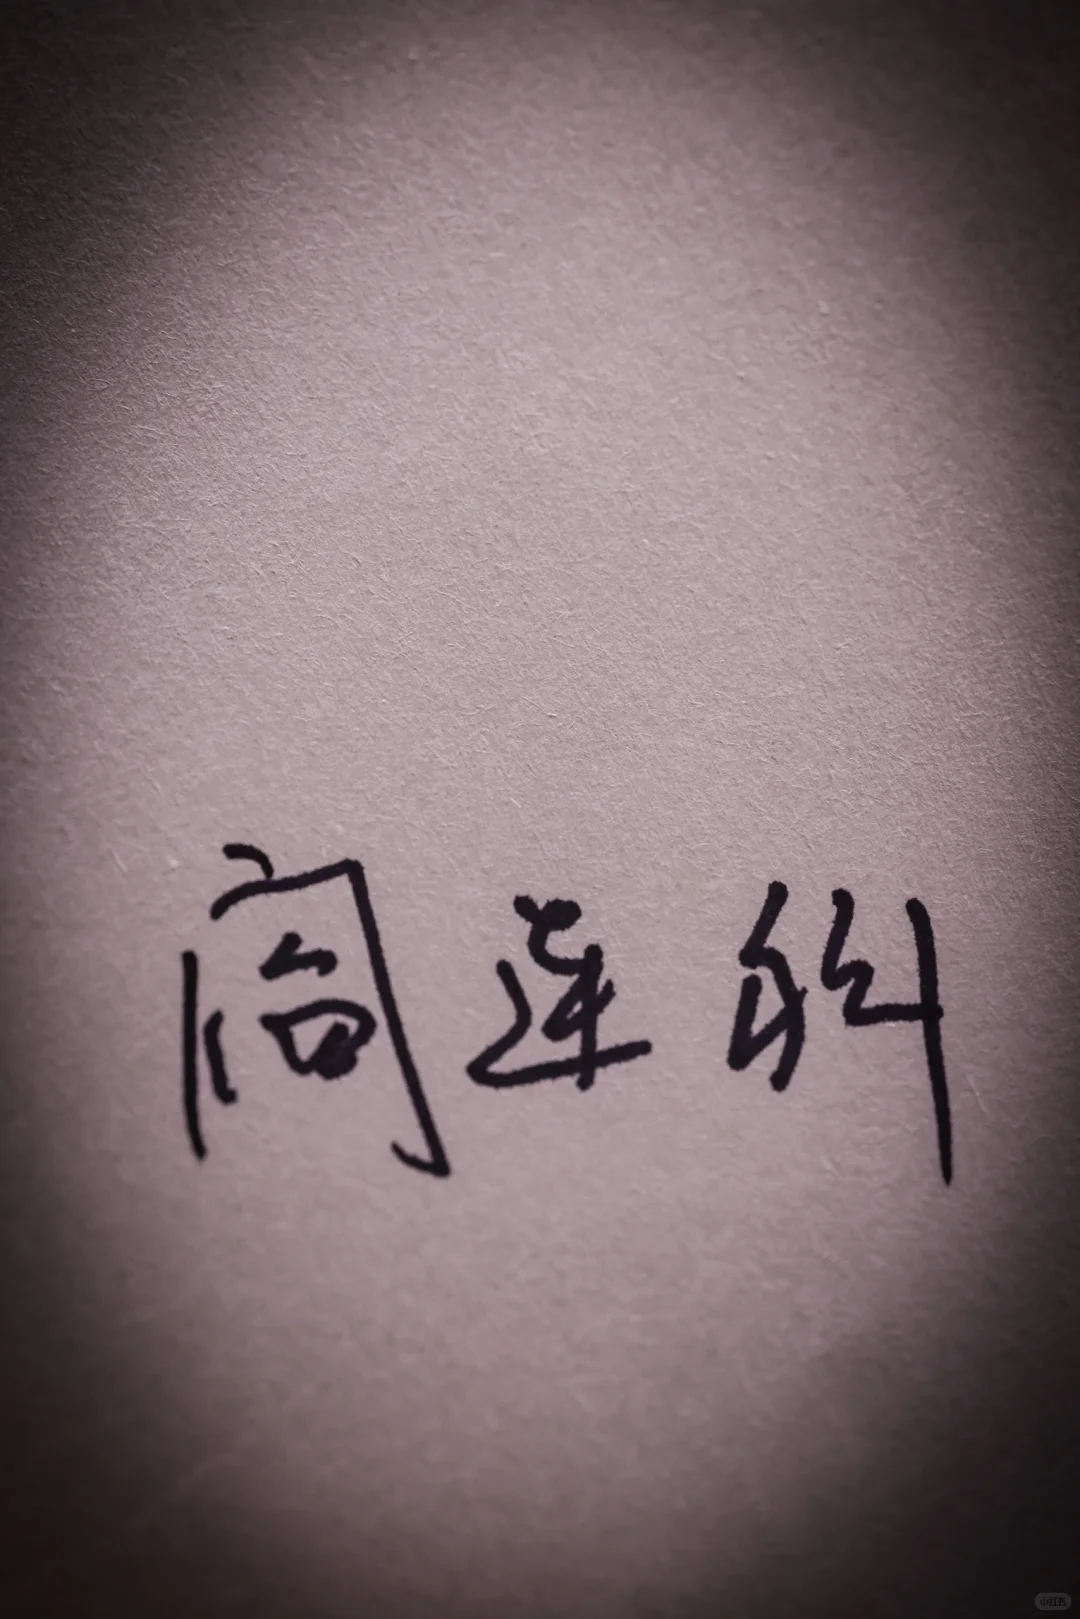 阎连科
小红书